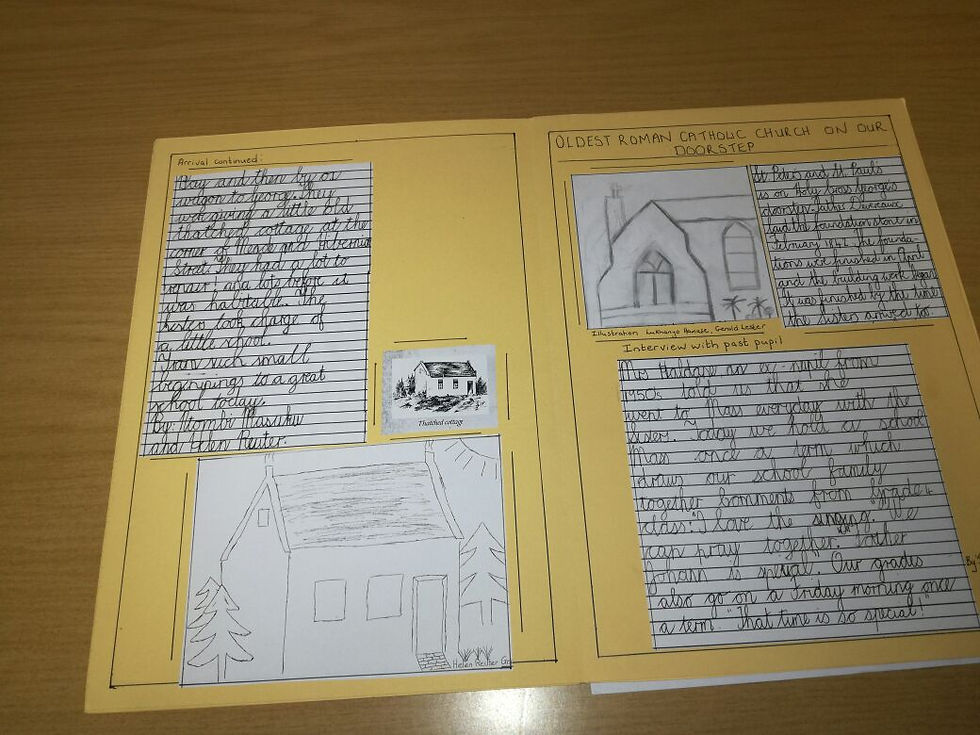 Arrival continued:
Bay and then by ox
wagon to George. They
were given a little old
thatched cottage at the
corner of Meade and Hibernia
Street. They had a lot to
and lots before it
was habitable. The
sisters took charge of
a little school.
From such small
beginnings to a great
school today.
By: Ntombi Masuku
and Helen Reuter.
Thatched cottage
Helen Reuter Gr
OLDEST ROMAN CATHOLIC CHURCH ON OUR
DOORSTEP
St Peters and St Paul's
is on Holy Cross George's
doorstep. Father Devereaux
laid the foundation stone in
February 1842. The founda-
tions were finished in April
and the building work began.
It was finished by the time
the sisters arrived to
Illustration Lukhanyo Gerald Lester
Interview with past pupil
Mrs as a pupil from
1950s told us that she
went to Mass everyday with the
sister. Today we hold a school
Mass once a term which
draws our school family
together. Comments from grade 4
class: "I love the singing." "We
can pray together." "Father
Johann is special." Our grades
also go on a Friday morning once
a term. "That time is so special!"
By: